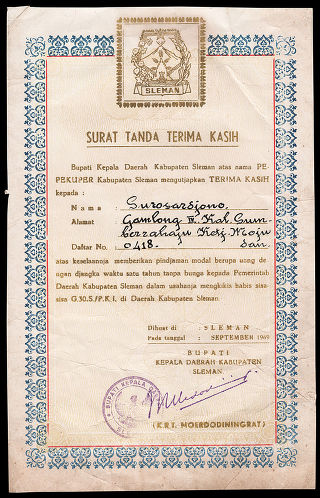 SLEMAN
SURAT TANDA TERIMA KASIH
Bupati Kepala Daerah Kabupaten Sleman atas nama PE-
PEKUPER Kabupaten Sleman mengutjapkan TERIMA KASIH
kepada :
Nama : Surosardjono.
Alamat : Gamlong III Kal. Sum-
berrahaju Ketj. Moju-
Daftar No. : 0418. dan.
atas keselaannja memberikan pindjaman modal berupa uang de-
ngan djangka waktu satu tahun tanpa bunga kepada Pemerintah
Daerah Kabupaten Sleman dalam usahanja mengkikis habis sisa-
sisa G.30.S./P.K.I. di Daerah Kabupaten Sleman.
Dibuat di : SLEMAN
Pada tanggal : SEPTEMBER 1969
BUPATI
KEPALA DAERAH KABUPATEN
SLEMAN
BUPATI KEPALA
(K.R.T. MOERDODININGRAT)